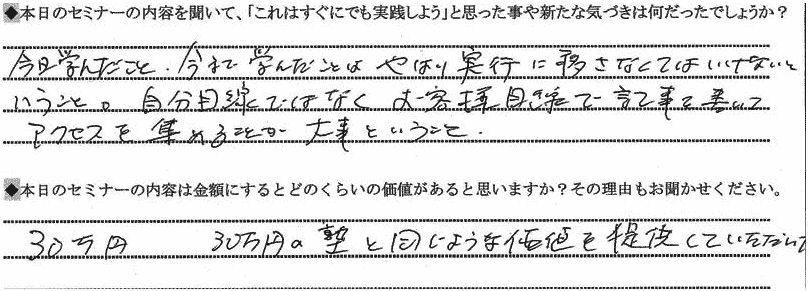 ◆本日のセミナーの内容を聞いて、「これはすぐにでも実践しよう」と思った事や新たな気づきは何だったでしょうか？
今日学んだこと．今まで学んだことは やはり実行に移さなくてはいけないと
いうこと。自分目線ではなく お客様目線で記事を書いて
アクセスを集めることが大事ということ．
◆本日のセミナーの内容は金額にするとどのくらいの価値があると思いますか？その理由もお聞かせください。
30万円 30万円の塾と同じような価値を提供していただいた